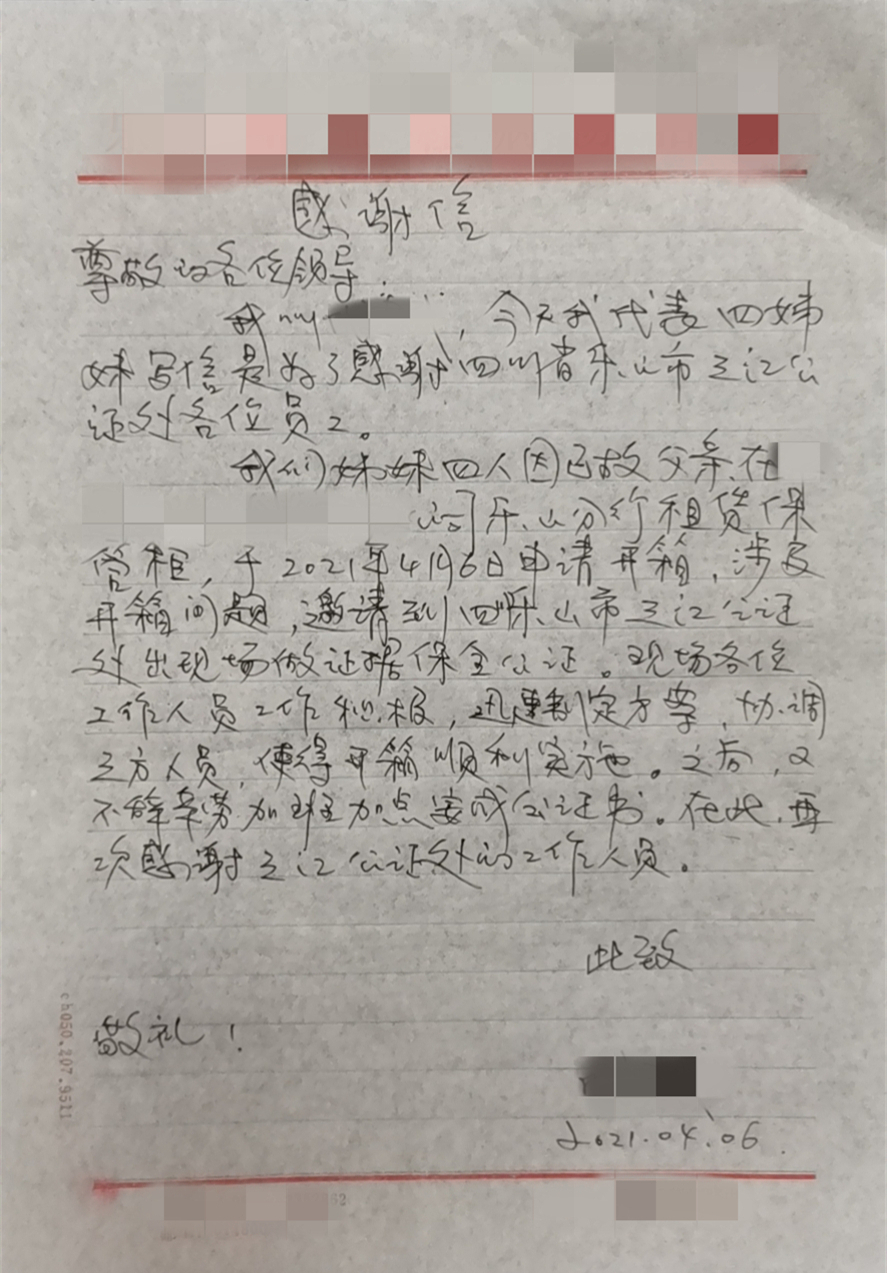 感谢信
尊敬的各位领导:
我叫 ,今天我代表四姊
妹写信是为了感谢四川省乐山市三江公
证处各位员工。
我们姊妹四人因已故父亲在
公司乐山分行租赁保
管柜,于2021年4月6日申请开箱,涉及
开箱问题,邀请到四川乐山市三江公证
处出现场做证据保全公证。现场各位
工作人员工作积极,迅速制定方案,协调
三方人员,使得开箱顺利实施。之后,又
不辞辛劳加班加点完成公证书。在此,再
次感谢三江公证处的工作人员。
此致
敬礼!
2021.04.06
ch050.207.9511